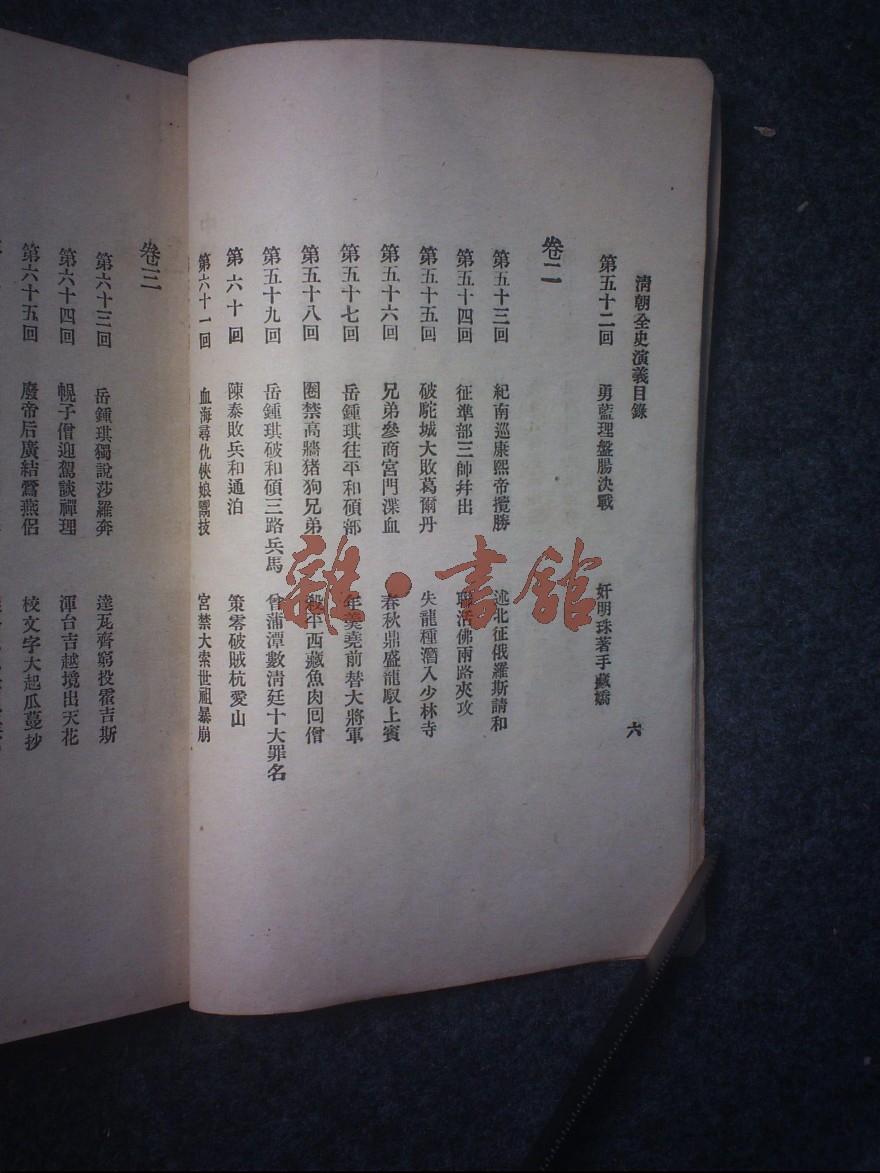 清朝全史演義目錄
六
第五十二回 勇藍理盤腸決戰 奸明珠著手藏嬌
卷二
第五十三回 紀南巡康熙帝攬勝 述北征俄羅斯請和
第五十四回 征準部三帥幷出 聯活佛兩路夾攻
第五十五回 破駝城大敗葛爾丹 失龍種潛入少林寺
第五十六回 兄弟參商宮門渫血 春秋鼎盛龍馭上賓
第五十七回 岳鍾琪往平和碩部 年羹堯前替大將軍
第五十八回 圈禁高牆猪狗兄弟 殺平西藏魚肉回僧
第五十九回 岳鍾琪破和碩三路兵馬 曾蒲潭數淸廷十大罪名
第六十回 陳泰敗兵和通泊 策零破賊杭愛山
第六十一回 血海尋仇俠娘鬻技 宮禁大索世祖暴崩
卷三
第六十三回 岳鍾琪獨說莎羅奔 達瓦齊窮投霍吉斯
第六十四回 幌子僧迎駕談禪理 渾台吉越境出天花
第六十五回 廢帝后廣結鶯燕侶 校文字大起瓜蔓抄
雜·書館